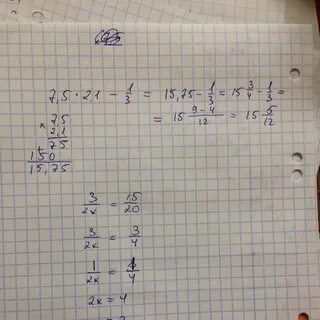 7,5 · 2,1 - 1/3 = 15,75 - 1/3 = 15 3/4 - 1/3 =
= 15 (9-4)/12 = 15 5/12
× 7,5
2,1
75
150
15,75
3/2x = 15/20
3/2x = 3/4
1/2x = 1/4
2x = 4